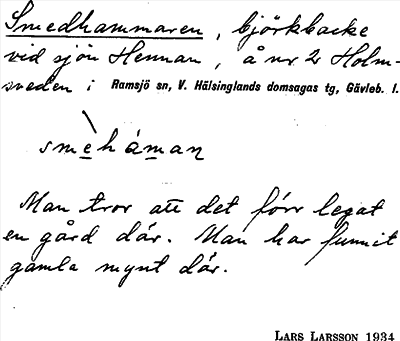 Smedhammaren, björkbacke
vid sjön Hennan, å nr 2 Holm-
sveden i Ramsjö sn, V. Hälsinglands domsagas tg, Gävleb. l.
smehàman
Man tror att det förr legat
en gård där. Man har funnit
gamla mynt där.
LARS LARSSON 1934